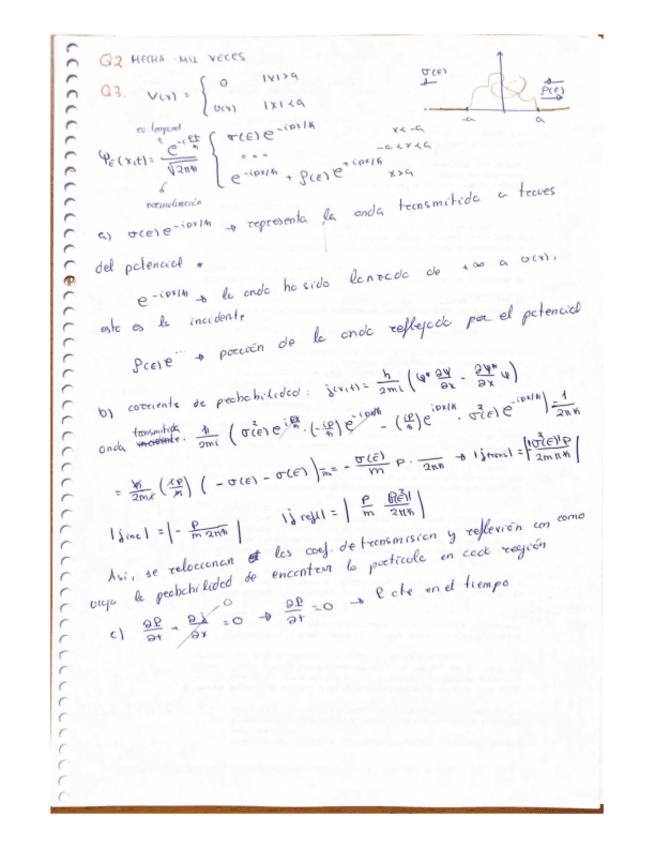 Q2. HECHA MIL VECES
Q3. V(x) = { 0 |x|>a
U(x) |x|<a
σ(E) ρ(E)
-a a
ev. temporal
φE(x,t) = e^{-iEt/ħ} / √2πħ { σ(E) e^{-ipx/ħ} x<-a
∘∘∘ -a<x<a
e^{-ipx/ħ} + ρ(E) e^{+ipx/ħ} x>a
normalización
a) σ(E) e^{-ipx/ħ} → representa la onda transmitida a traves
del potencial.
e^{-ipx/ħ} → la onda ha sido lanzada de +∞ a U(x),
esta es la incidente
ρ(E)e^{...} → porción de la onda reflejada por el potencial
b) corriente de probabilidad: j(x,t) = ħ/2mi (ψ* ∂ψ/∂x - ∂ψ*/∂x ψ)
transmitida
onda incidente: ħ/2mi ( σ²(E) e^{ipx/ħ} · (-ip/ħ) e^{-ipx/ħ} - (ip/ħ) e^{ipx/ħ} · σ²(E) e^{-ipx/ħ} ) = 1/2πħ
= ħ/2mi (ip/ħ) ( -σ(E) - σ(E) ) = - σ(E)/m p · /2πħ → |jtrans| = |σ²(E)| p / 2mπħ
|jinc| = |- p/m2πħ| |j refl| = | p/m |ρ²(E)|/2πħ |
Asi, se relacionan los coef. de transmision y reflexión con como
la probabilidad de encontrar la particula en cada región
c) ∂ρ/∂t - ∂j/∂x = 0 → ∂ρ/∂t = 0 → ρ cte en el tiempo
0